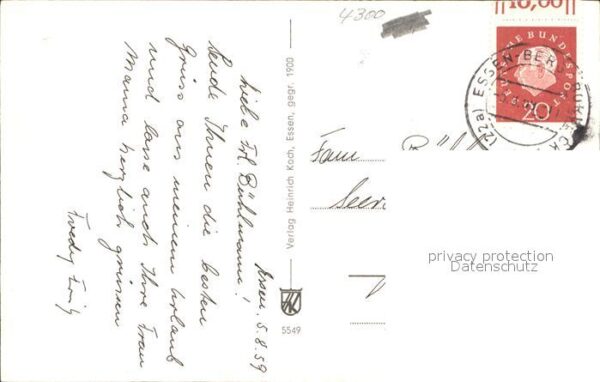 4300
10,00
DEUTSCHE BUNDESPOST
20
(22a) ESSEN-BERGE
Essen, 5.8.59
Liebe Frl. Bühlmann!
Sende Ihnen die besten
Gruss aus meinem Urlaub
und lasse auch Ihre Frau
Mama herzlich grüssen
Verlag Heinrich Koch, Essen, gegr. 1900
5549
Fam.
privacy protection
Datenschutz